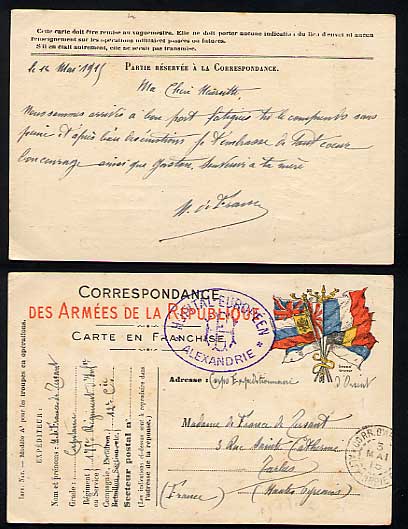 Cette carte doit être remise au vaguemestre. Elle ne doit porter aucune indication du lieu d'envoi ni aucun
renseignement sur les opérations militaires passées ou futures.
S'il en était autrement, elle ne serait pas transmise.
Partie réservée à la Correspondance.
le 12 Mai 1915
Ma Chère
Nous sommes arrivés à bon port fatigués tu le comprends sans
peine et après bien des émotions. Je t'embrasse de tout coeur
Bon courage ainsi que Gaston, souvenir à ta mère
de France
Correspondance
des Armées de la République
Carte en Franchise
HÔPITAL EUROPÉEN
ALEXANDRIE
Adresse : Corps Expéditionnaire
d'Orient
Madame de France de Tersant
3 Rue Sainte Catherine
Tarbes
(France) (Hautes Pyrénées)
MAI
15
Modèle A pour les troupes en opérations.
EXPÉDITEUR :
Nom et prénoms : de France de Tersant
Grade : Capitaine
Régiment
(ou Service)
Compagnie, 12e Cie
Secteur postal n°
l'adresse de la réponse.)